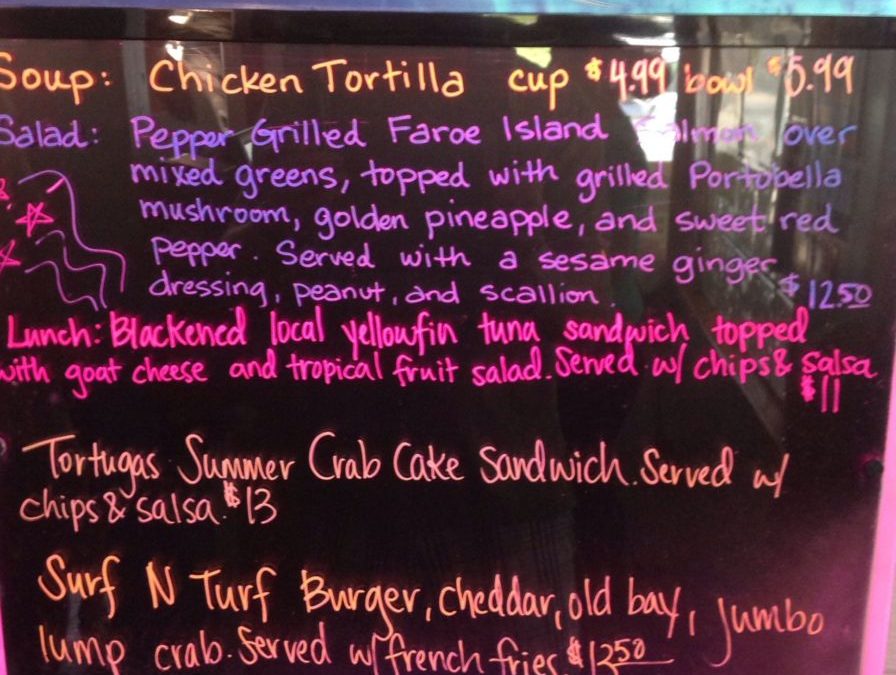 Soup: Chicken Tortilla cup $4.99 bowl $5.99
Salad: Pepper Grilled Faroe Island Salmon over
mixed greens, topped with grilled Portobella
mushroom, golden pineapple, and sweet red
pepper. Served with a sesame ginger
dressing, peanut, and scallion. $12.50
Lunch: Blackened local yellowfin tuna sandwich topped
with goat cheese and tropical fruit salad. Served w/ chips & salsa
$11
Tortugas Summer Crab Cake Sandwich. Served w/
chips & salsa. $13
Surf N Turf Burger, cheddar, old bay, jumbo
lump crab. Served w/ french fries $12.50